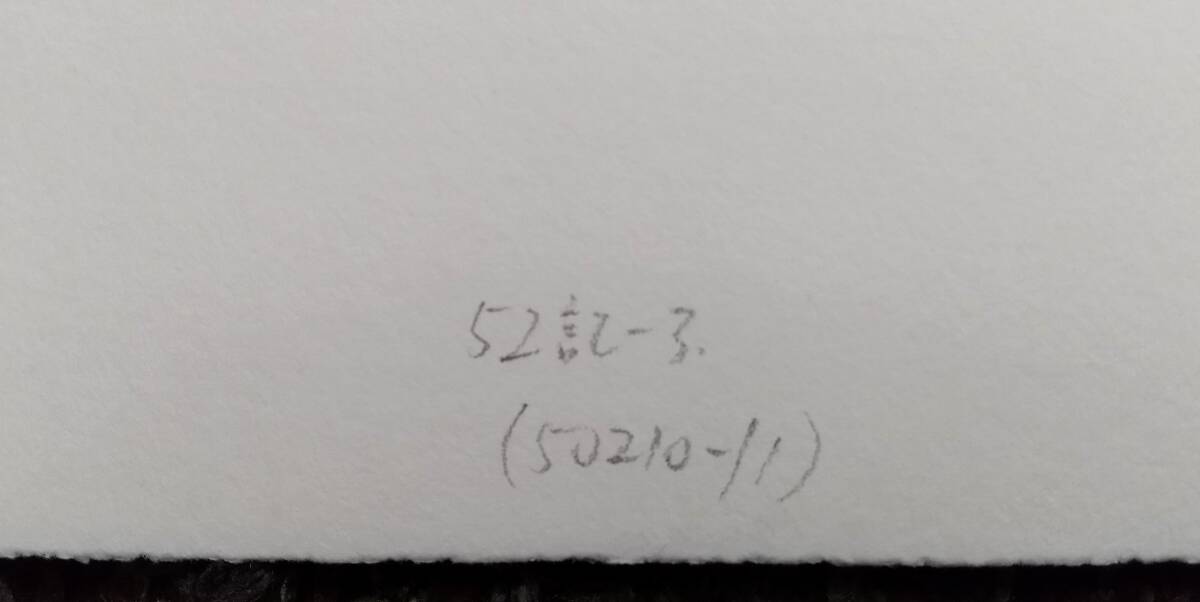 52記-3.
(50210-11)